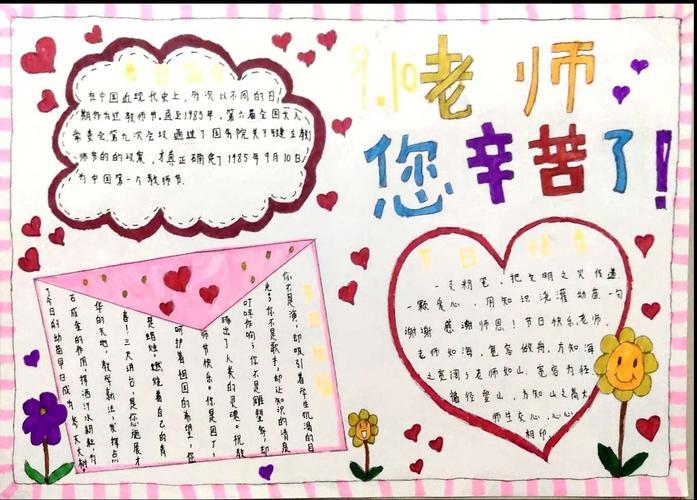 9.10老师
您辛苦了!
在中国近现代史上,多次以不同的日
期作为过教师节,直至1985年,第六届全国大人
常委会第九次会议通过了国务院关于建立教
师节的的议案,才真正确定了1985年9月10日
为中国第一个教师节.
节日祝福
你不是演,却吸引着学生饥渴的目
光;你不是歌手,却让知识的清泉
叮咚作响;你不是雕塑家,却
塑出了人类的灵魂。祝教
师节快乐。你是园丁,
呵护着祖国的希望,您
是蜡烛,燃烧着自己的青
春!三尺讲台,是你施展才
华的天地,教学新法,发挥点
石成金的作用,挥洒汗水耕耘,为
了今日的幼苗早日成为参天大树
节日快乐
一支粉笔,把文明之火传递
一颗爱心,用知识浇灌幼苗一句
谢谢 感谢师恩!节日快乐,老师.
老师如海,宽容做舟,方知海
之宽阔;老师如山,宽容为径
循径登山,方知山之高大
师生交心,心心
相印.